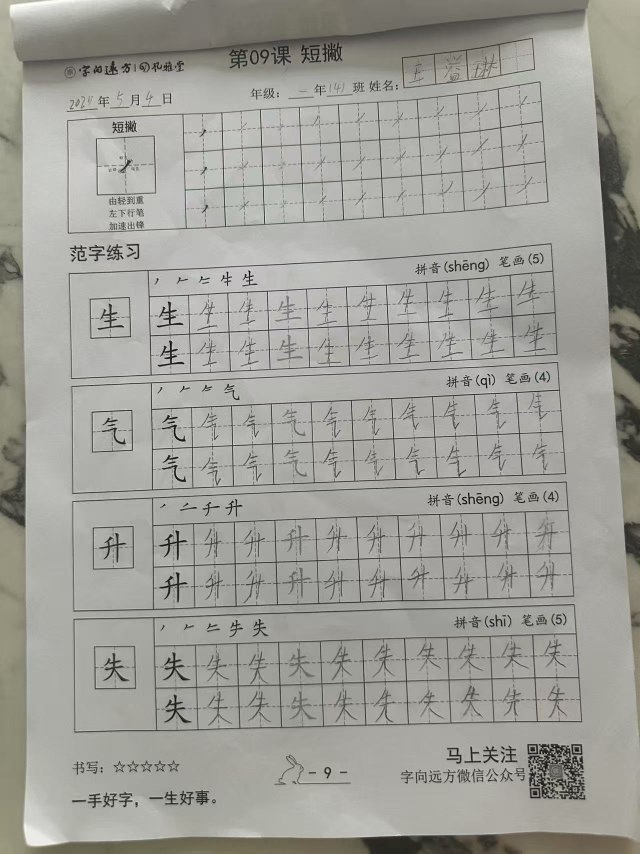 字向远方 礼雅堂
第09课 短撇
2024年5月4日 年级：一年(4)班 姓名：王
短撇
由轻到重
左下行笔
加速出锋
范字练习
生 拼音(shēng) 笔画(5)
生 生 生 生 生 生 生 生 生 生 生
生 生 生 生 生 生 生 生 生 生
气 拼音(qì) 笔画(4)
气 气 气 气 气 气 气 气 气 气 气
气 气 气 气 气 气 气 气 气 气
升 拼音(shēng) 笔画(4)
升 升 升 升 升 升 升 升 升 升 升
升 升 升 升 升 升 升 升 升 升
失 拼音(shī) 笔画(5)
失 失 失 失 失 失 失 失 失 失 失
失 失 失 失 失 失 失 失 失 失
书写：☆☆☆☆☆
- 9 -
马上关注
字向远方微信公众号
一手好字，一生好事。